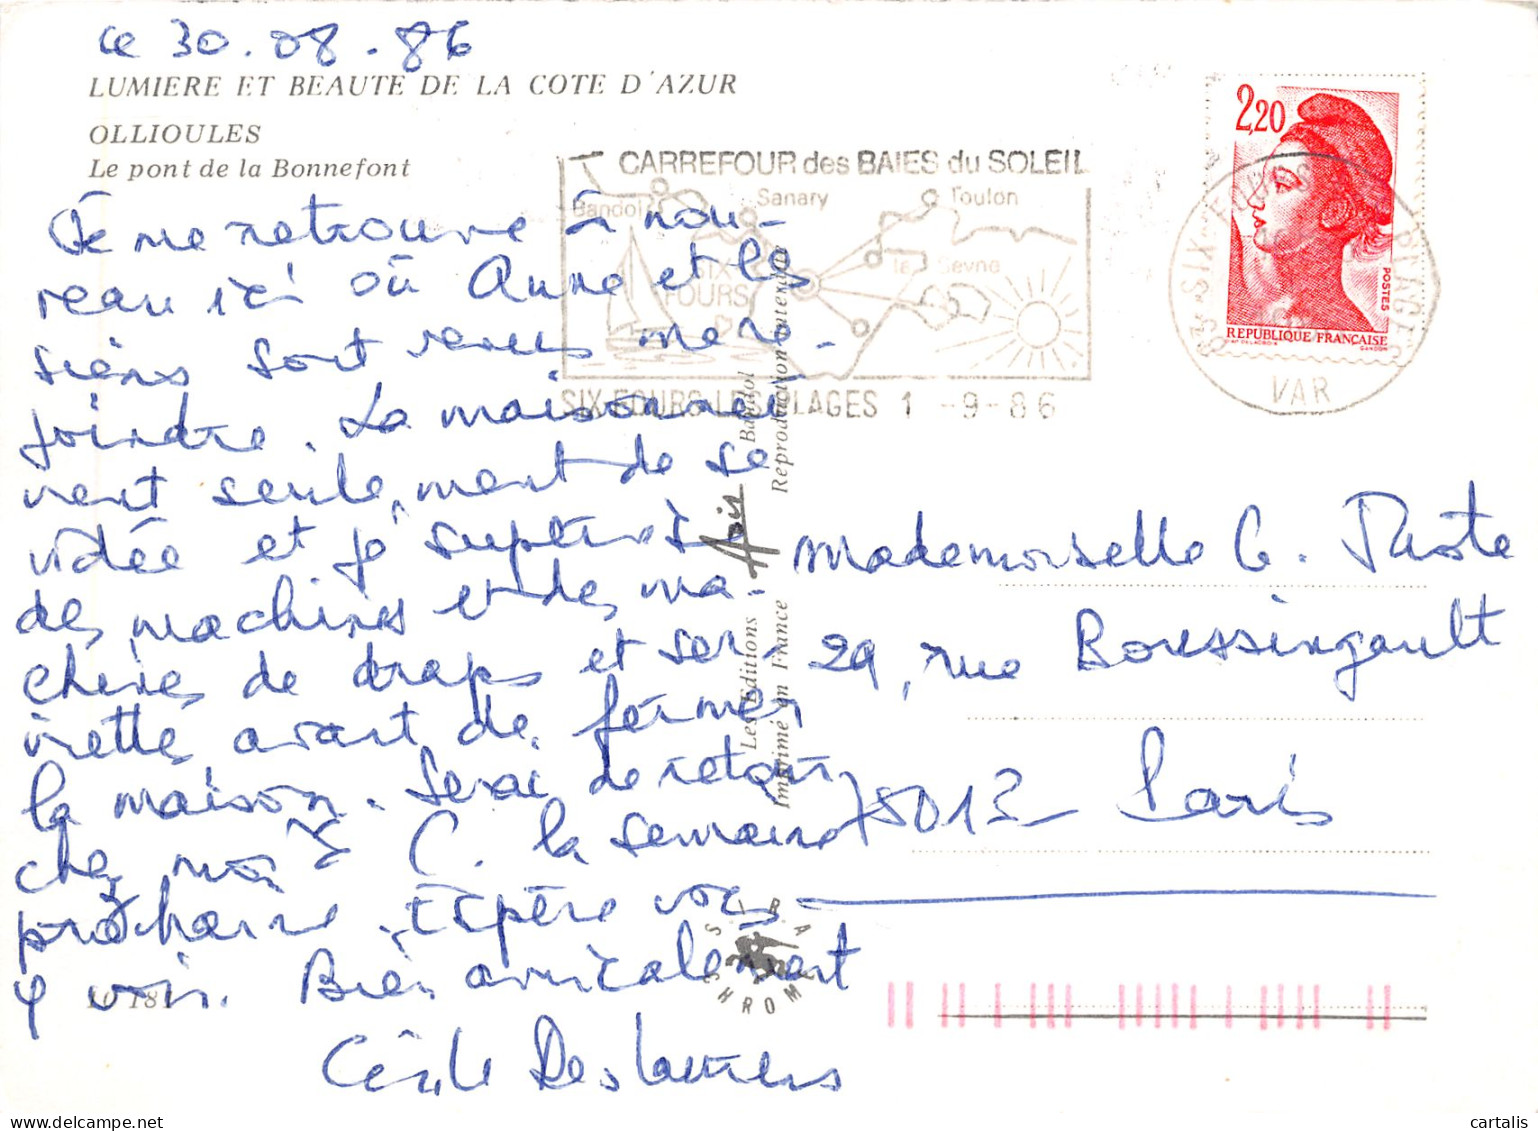 ce 30.08.86
LUMIERE ET BEAUTE DE LA COTE D'AZUR
OLLIOULES
Le pont de la Bonnefont
Je me retrouve à nou-
veau ici où Anne et les
siens sont venus me re-
joindre. La maison
vient seulement de se
vider et je
des machines et des ma-
chines de draps et ser-
viettes avant de fermer
la maison. Serai de retour
chez moi à C. la semaine
prochaine. Espère vous
y voir. Bien amicalement
Cécile Deslauriers
10 181
CARREFOUR des BAIES du SOLEIL
Bandol
Sanary
Toulon
la Seyne
SIX
FOURS
SIX-FOURS-LES-PLAGES 1 -9-86
2,20
POSTES
REPUBLIQUE FRANÇAISE
GANDON
83 SIX FOURS PLAGES
VAR
Les Editions Apis Bandol
Imprimé en France Reproduction interdite
SIRA CHROME
Mademoiselle C.
29, rue Boussingault
75013 - Paris
delcampe.net
cartalis